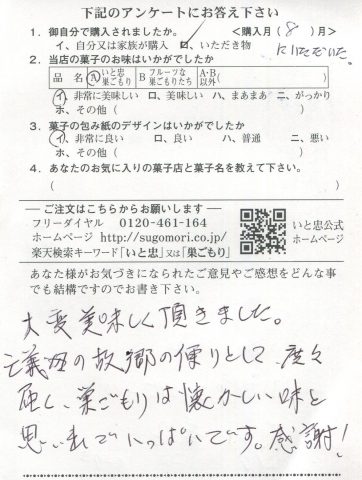 下記のアンケートにお答え下さい
1. 御自分で購入されましたか。 <購入月( 8 )月>
イ、自分又は家族が購入 ロ、いただき物 にいただいた。
2. 当店の菓子のお味はいかがでしたか
品名 A いと忠巣ごもり B フルーツな巣ごもりたち A・B以外( )
イ、非常に美味しい ロ、美味しい ハ、まあまあ ニ、がっかり
ホ、その他 ( )
3. 菓子の包み紙のデザインはいかがでしたか
イ、非常に良い ロ、良い ハ、普通 ニ、悪い
ホ、その他 ( )
4. あなたのお気に入りの菓子店と菓子名を教えて下さい。
( )
―ご注文はこちらからお願いします―
フリーダイヤル 0120-461-164
ホームページ http://sugomori.co.jp/
楽天検索キーワード「いと忠」又は「巣ごもり」
いと忠公式
ホームページ
あなた様がお気づきになられたご意見やご感想をどんな事
でも結構ですのでお書き下さい。
大変美味しく頂きました。
義母の故郷の便りとして、度々
巣ごもりは懐かしい味と
思い出でいっぱいです。感謝!